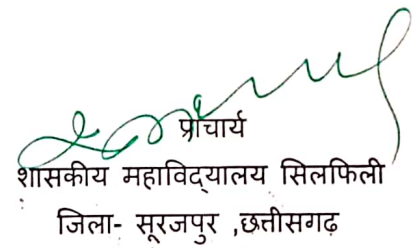 प्राचार्य
शासकीय महाविद्यालय सिलफिली
जिला- सूरजपुर ,छत्तीसगढ़